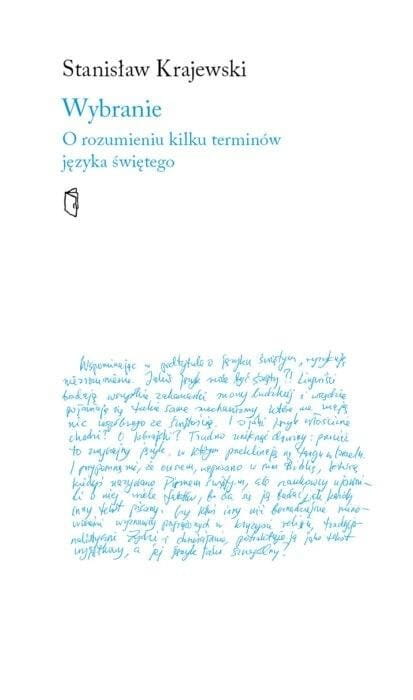 Stanisław Krajewski
Wybranie
O rozumieniu kilku terminów
języka świętego
Wspominając w podtytule o języku świętym, ryzykuję
niezrozumienie. Jakiś język może być święty?! Lingwiści
badają wszystkie zakamarki mowy ludzkiej i wszędzie
pojawiają się takie same mechanizmy, które nie mają
nic wspólnego ze świętością. I o jaki język właściwie
chodzi? O hebrajski? Trudno uniknąć drwiny: przecież
to zwyczajny język, w którym przeklinają na targu w Izraelu.
I przypomną mi, że owszem, napisano w nim Biblię, którą
kiedyś nazywano Pismem Świętym, ale naukowcy ujawnili
o niej wiele faktów, bo da się ją badać jak każdy
inny tekst pisany. Czy ktoś inny niż
wyznawcy pogrążonych w kryzysie religii,
Żydzi i chrześcijanie, potraktuje ją jako tekst
wyjątkowy, a jej język jako szczególny?